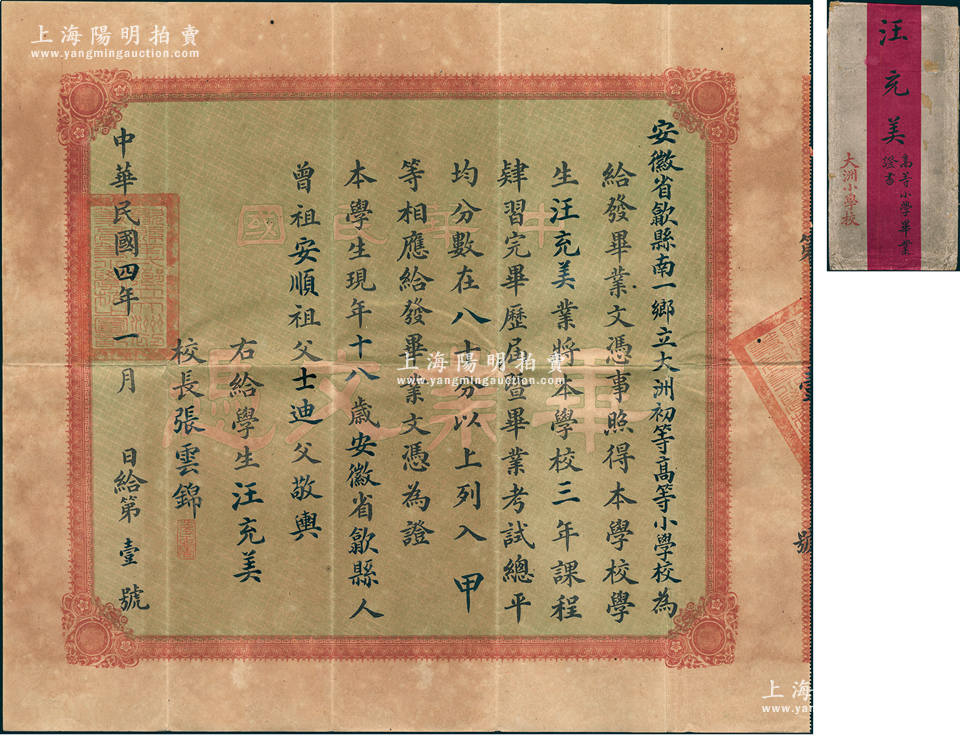 上海陽明拍賣
www.yangmingauction.com
第
壹
號
安徽省歙縣南一鄉立大洲初等高等小學校為
給發畢業文憑事照得本學校學
生汪充美業將本學校三年課程
肄習完畢歷屆暨畢業考試總平
均分數在八十分以上列入甲
等相應給發畢業文憑為證
本學生現年十八歲安徽省歙縣人
曾祖安順祖父士迪父敬輿
右給學生汪充美
校長張雲錦
中華民國四年一月 日給第壹號
中華民國
畢業文憑
上海陽明拍賣
www.yangmingauction.com
上海
www.yan
汪充美
高等小學畢業
證書
大洲小學校